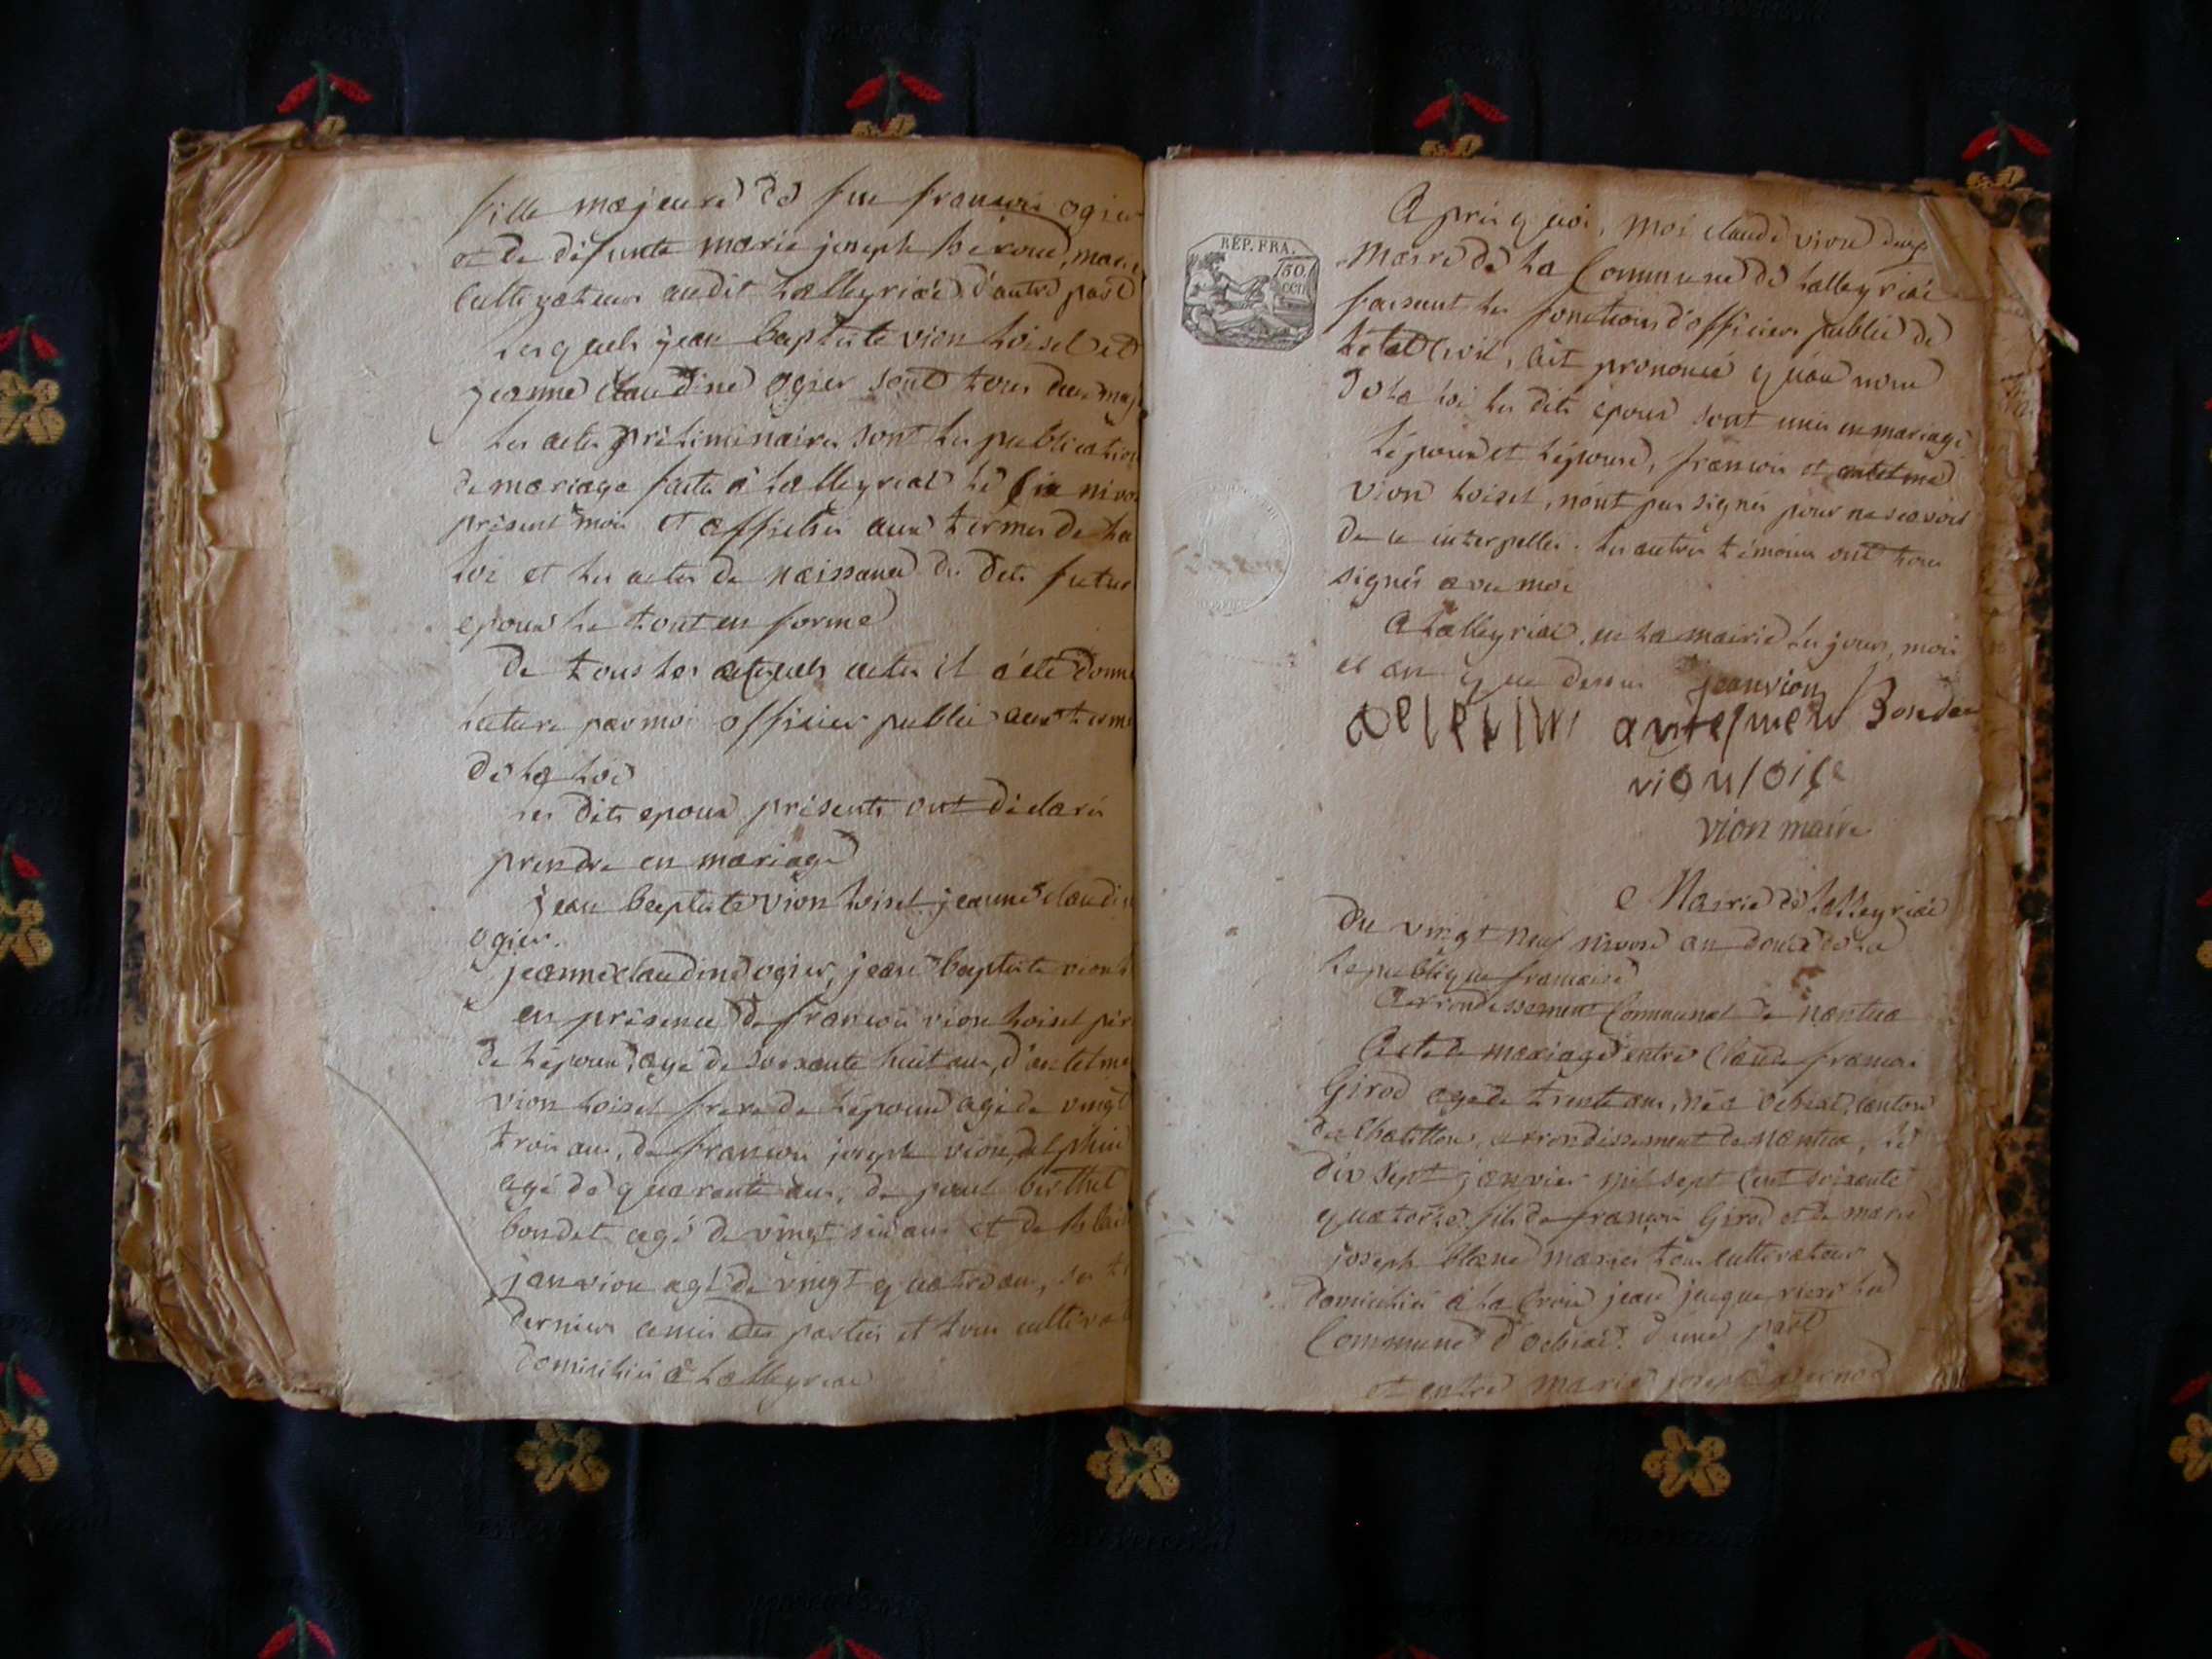 fille majeure de feu françois ogier
et de defunte marie joseph mari
cultivateurs audit Lalleyriat d'autre part
Lesquels jean baptiste vion Loiset et
jeanne Claudine Ogier sont tous deux maj
Les actes préliminaires sont les publication
de mariage faites à Lalleyriat le six nivos
présent mois et affichés aux termes de la
loi et les actes de naissance des dits futur
epoux le tout en forme
De tous les actes il a été donné
lecture par moi officier public aux terme
de la loi
Les dits epoux présents ont déclarés
prendre en mariage
jean baptiste vion Loiset jeanne claudin
ogier.
jeanne claudine ogier, jean baptiste vion L
en présence de françois vion Loiset pèr
de l'époux, agé de soixante huit ans, d'antelme
vion Loiset frere de l'époux agé de vingt
trois ans, de françois joseph vion delphin
agé de quarante ans, de paul berthet
bondet agé de vingt six ans et de
janvion agé de vingt quatre ans, ses
derniers amis des parties et tous cultivat
domiciliés à Lalleyriat
Après quoi, moi claude vion
Maire de la Commune de Lalleyriat
REP. FRA.
50.
cen
faisant les fonctions d'officier public de
l'état Civil, ait prononcé qu'au nom
de la loi les dits epoux sont unis en mariage
L'époux et L'épouse, françois et antelme
vion Loiset, n'ont pas signés pour ne scavoir
de ce interpellés. Les autres témoins ont tous
signés avec moi
A Lalleyriat en la mairie les jour, mois
et an que dessus janvion
delphin Bondet
vion loise
vion maire
Mairie de Lalleyriat
Du vingt neuf nivose an douze de la
Republique francaise
Arrondissement Communal de nantua
Acte de mariage entre Claude françois
Girod agé de trente ans, né à ochiat, canton
de Chatillon, arrondissement de Nantua, le
dix sept janvier mil sept Cent soixante
quatorze. fils de françois Girod et de marie
joseph blanc mariés tous cultivateurs
domiciliés à la Croix jean jacques
Commune d'ochiat. d'une part
et entre marie joseph